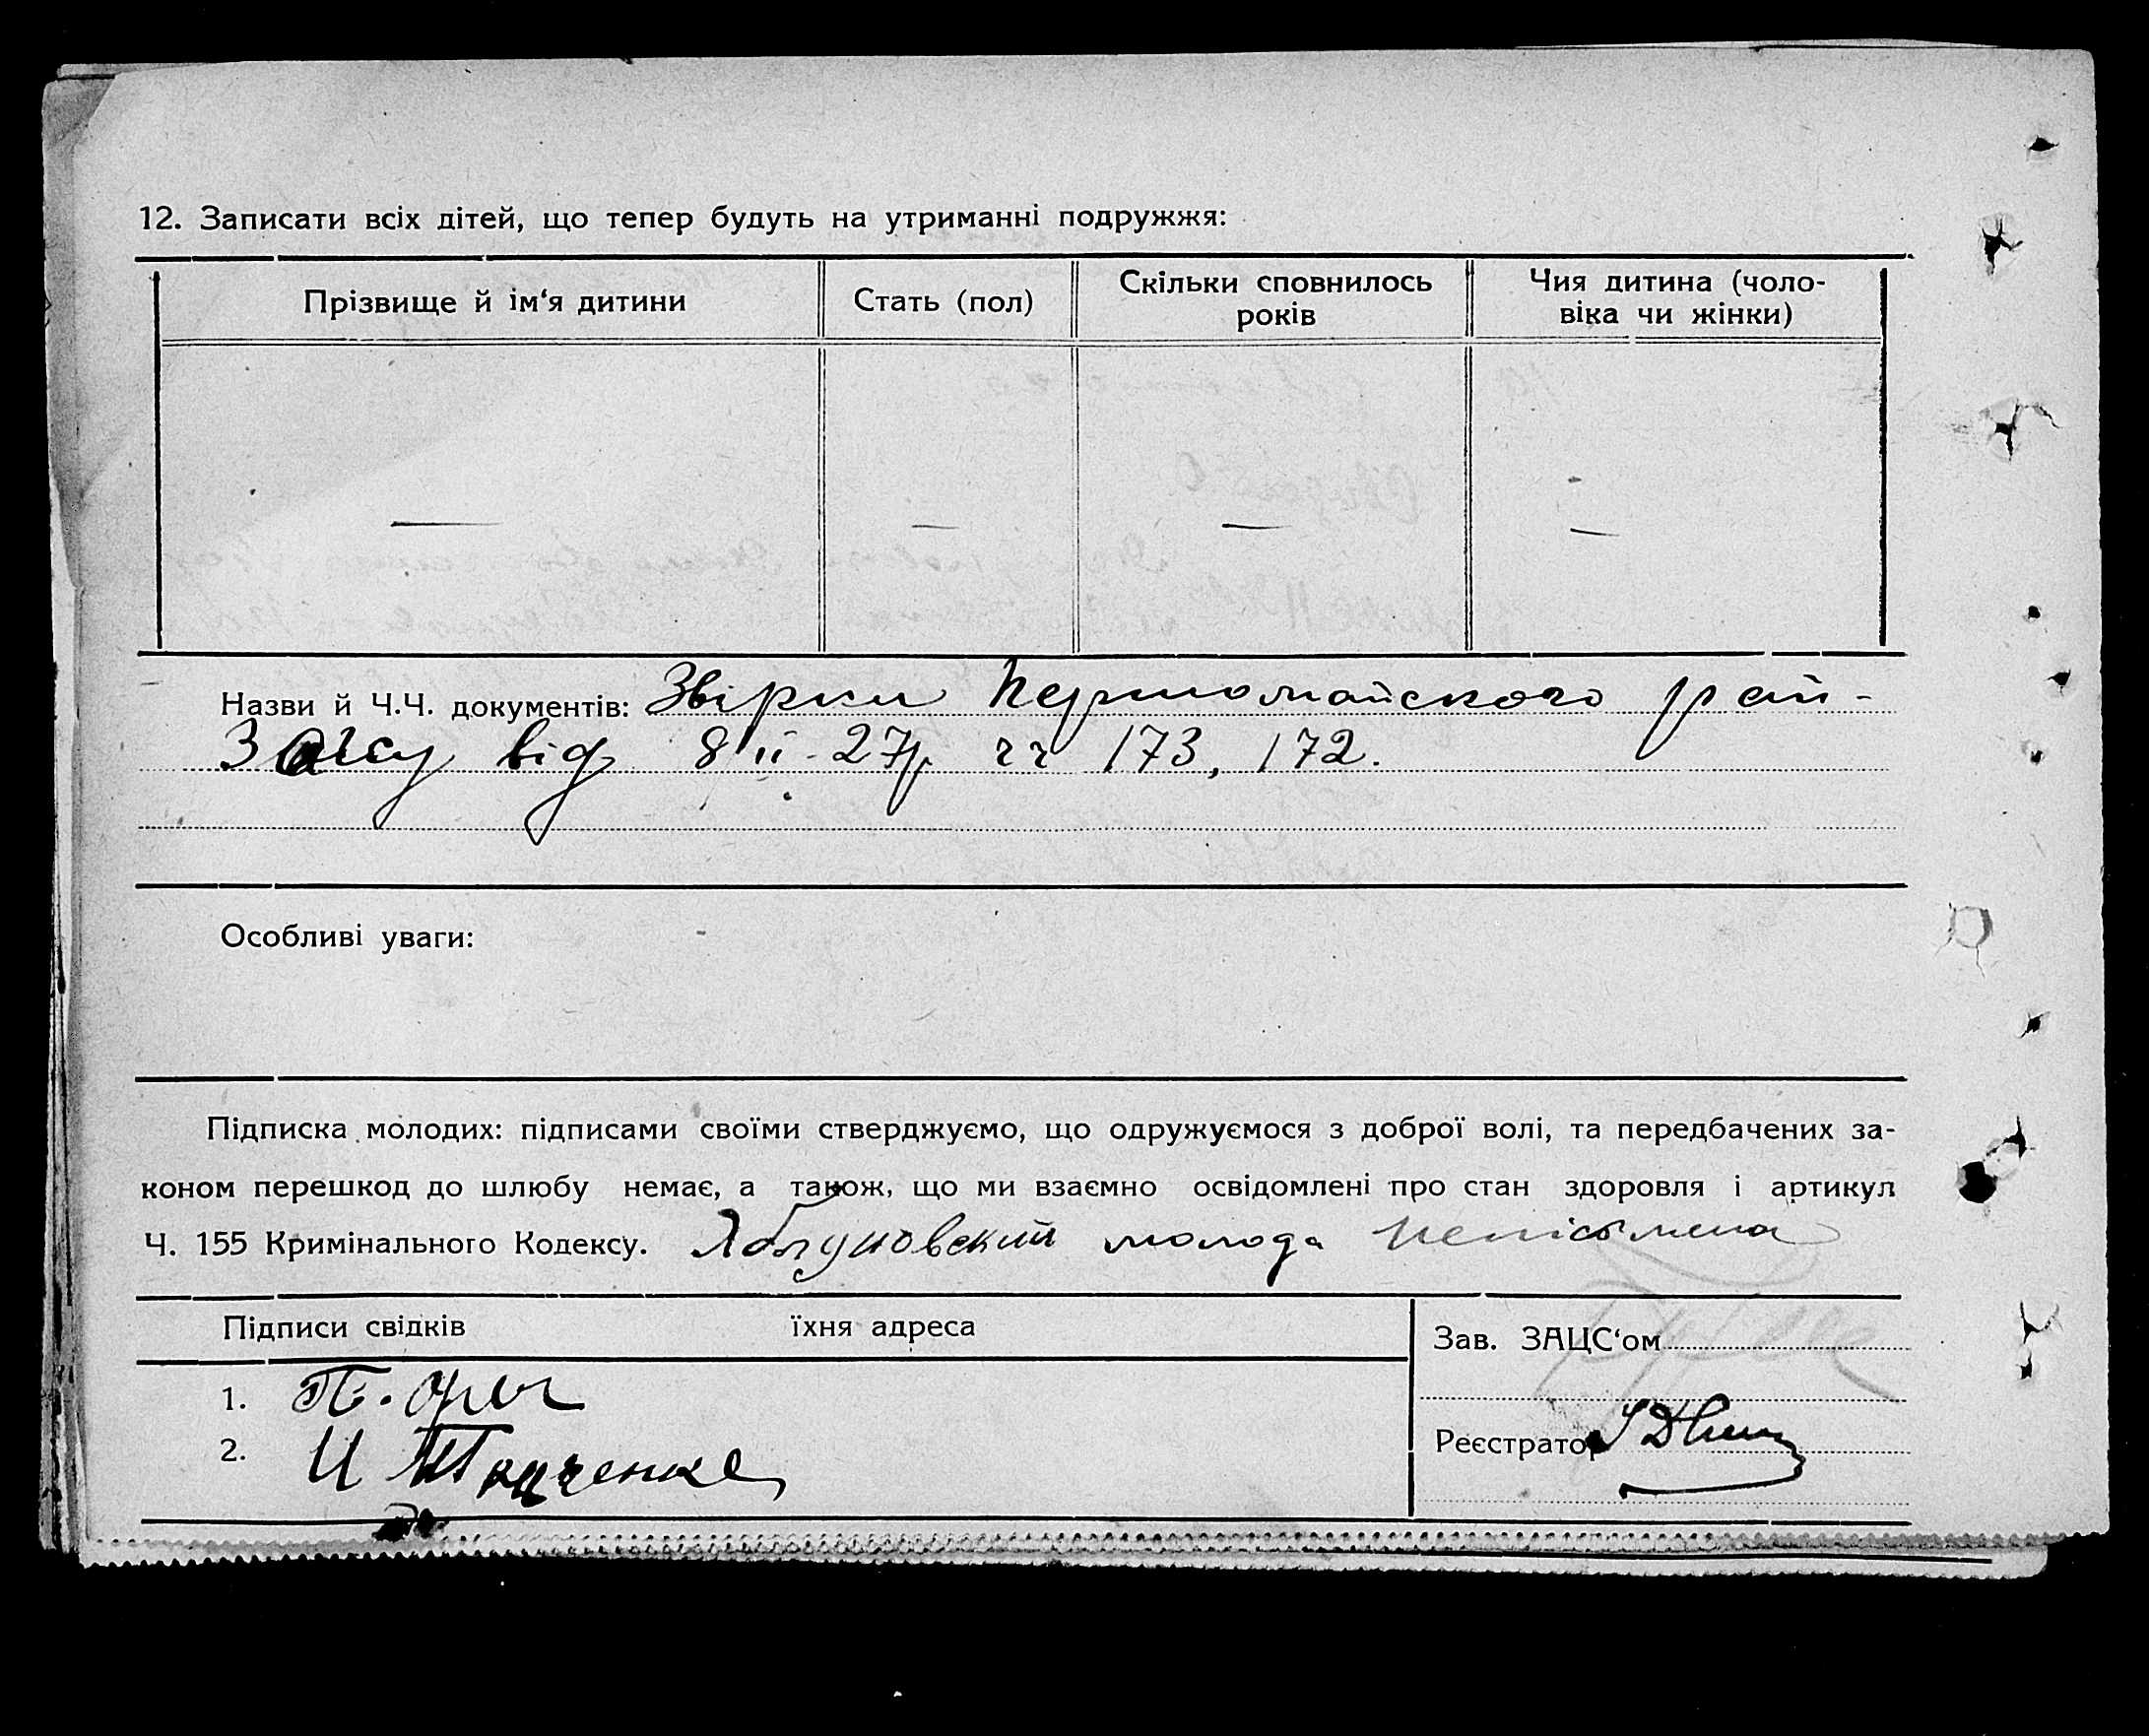 12. Записати всіх дітей, що тепер будуть на утриманні подружжя:
Прізвище й ім‘я дитини
Стать (пол)
Скільки сповнилось
років
Чия дитина (чоло-
віка чи жінки)
— — — —
Назви й Ч.Ч. документів: Звірки Першомайского рай-
від 8/ІІ-27р чч 173, 172.
Особливі уваги:
Підписка молодих: підписами своїми стверджуємо, що одружуємося з доброї волі, та передбачених за-
коном перешкод до шлюбу немає, а також, що ми взаємно освідомлені про стан здоровля і артикул
Ч. 155 Кримінального Кодексу. Яблуновский молода непісьмена
Підписи свідків їхня адреса
Зав. ЗАЦС‘ом
1.
2. И
Реєстратор